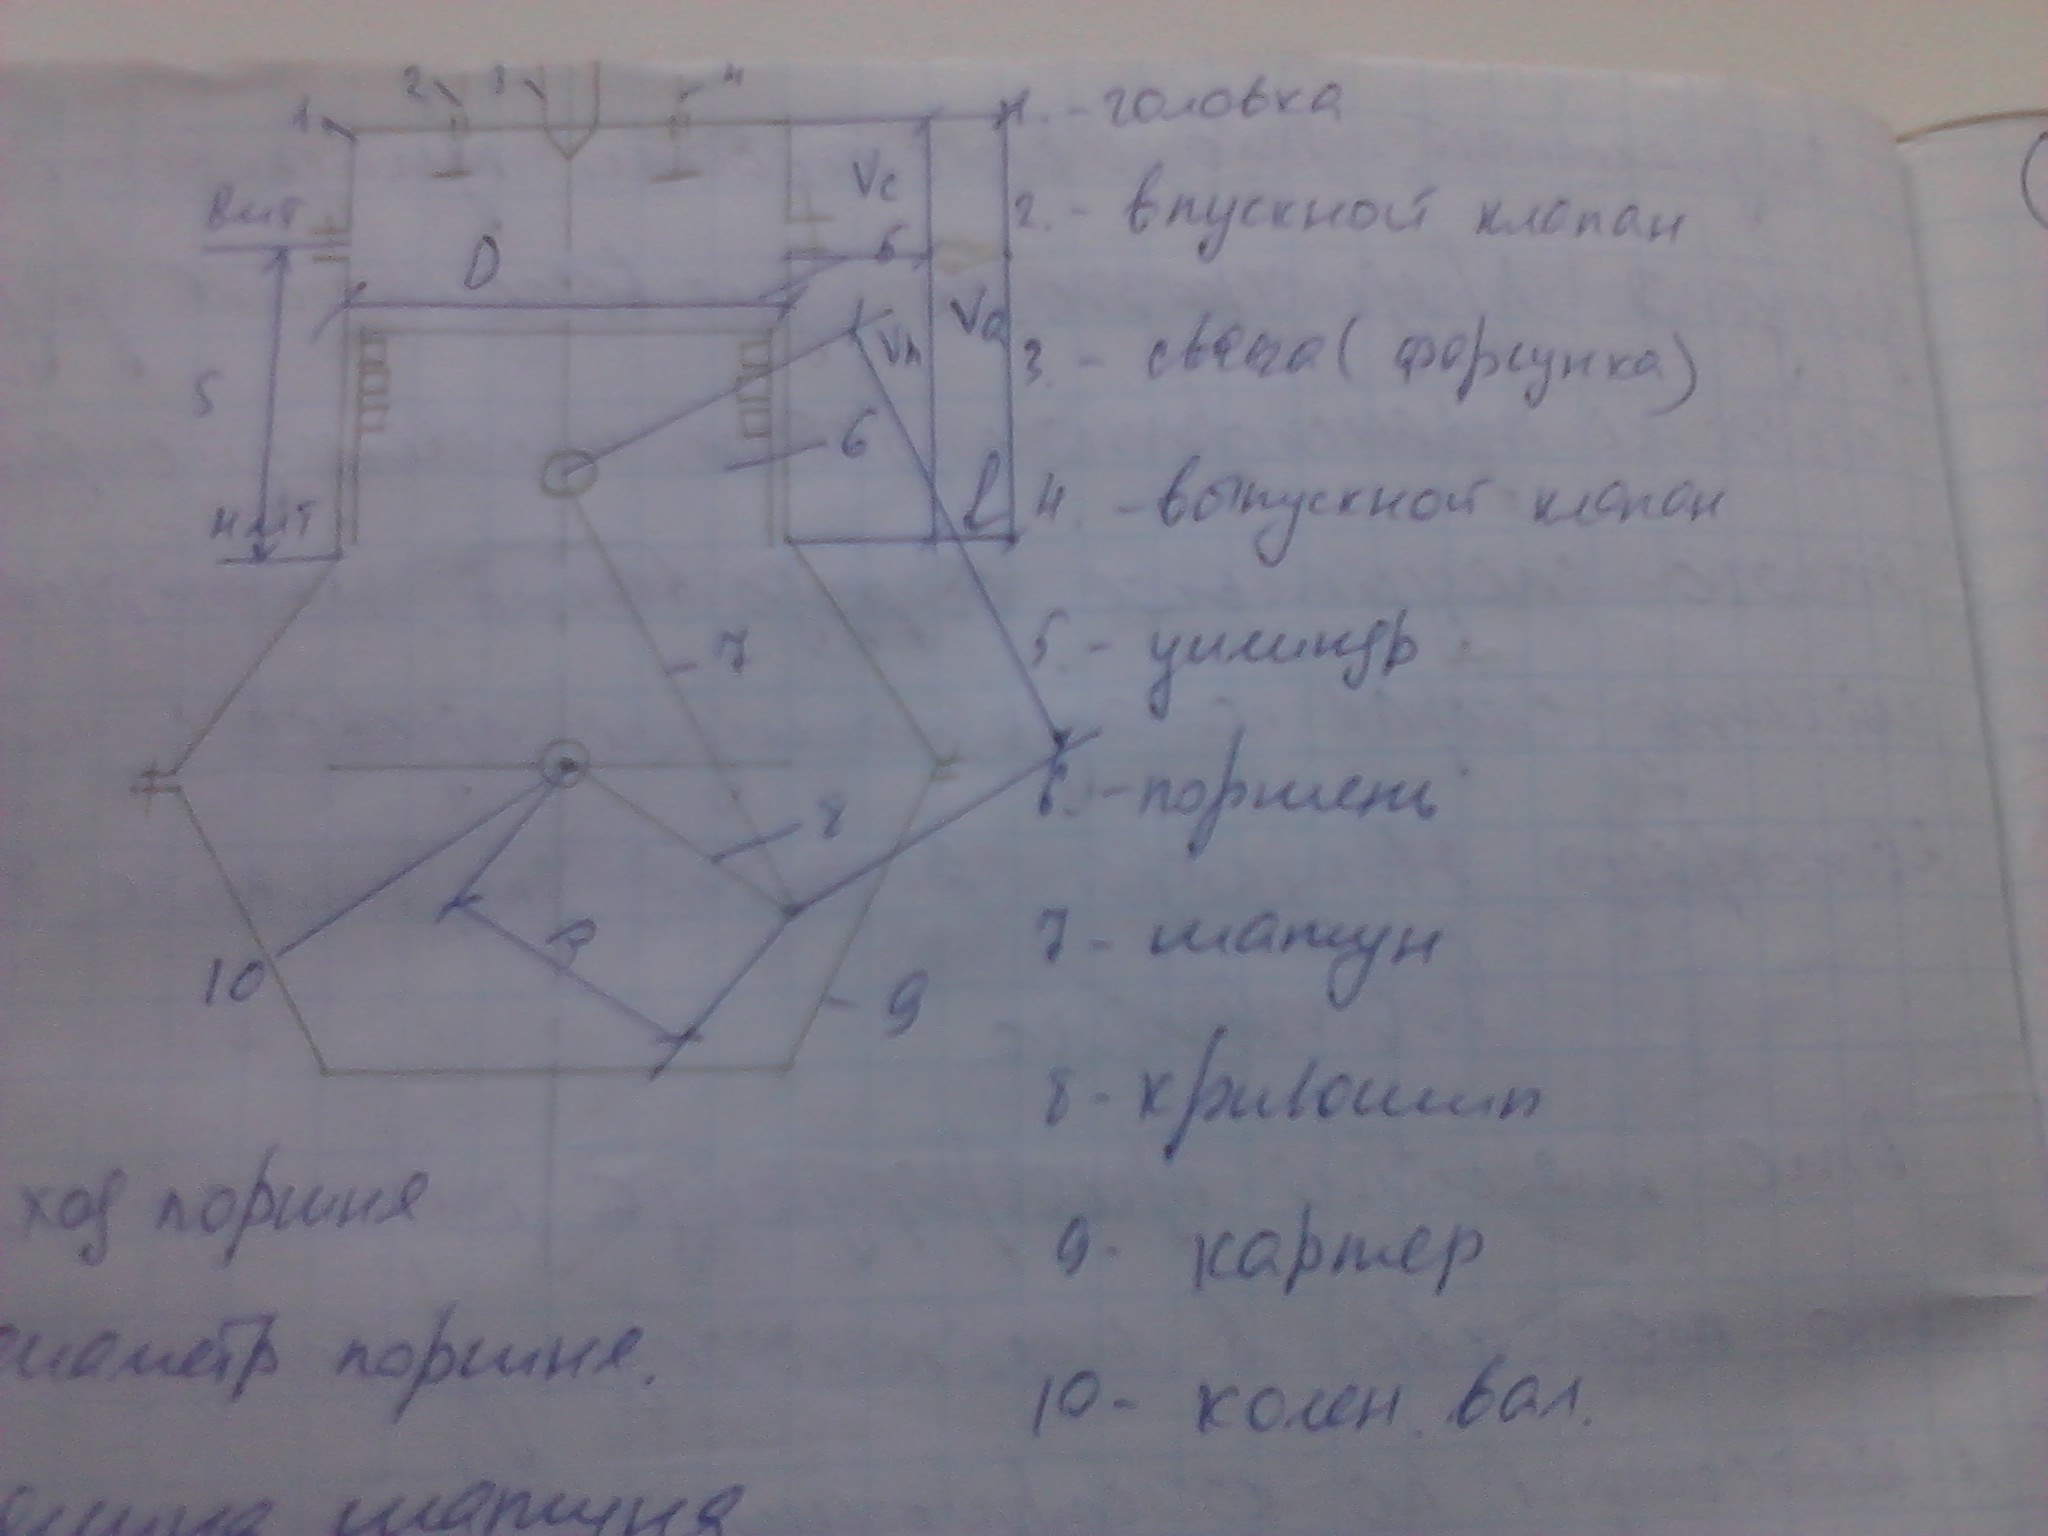 1 2 3 4
1. - головка
Vc
ВМТ
2. - впускной клапан
D
5
Vh
Va
3. - свеча (форсунка)
S
6
НМТ
L
4. - выпускной клапан
7
5. - цилиндр
6. - поршень
8
7 - шатун
R
10
9
8 - кривошип
ход поршня
9 - картер
диаметр поршня.
10 - колен. вал.
длина шатуна